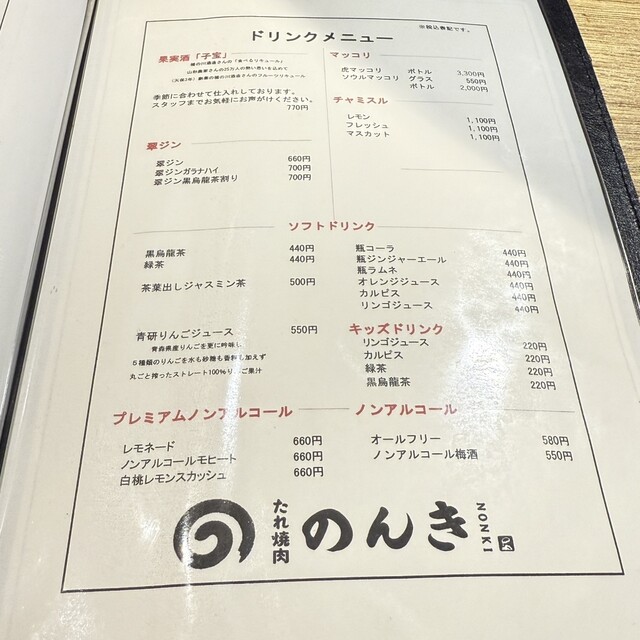 ※税込表記です。
ドリンクメニュー
果実酒「子宝」
山形農家さんの
季節に合わせて仕入れしております。
スタッフまでお気軽にお声がけください。
770円
マッコリ
虎マッコリ ボトル 3,300円
ソウルマッコリ グラス 550円
ボトル 2,000円
チャミスル
レモン 1,100円
フレッシュ 1,100円
マスカット 1,100円
翠ジン
翠ジン 660円
翠ジンガラナハイ 700円
翠ジン黒烏龍茶割り 700円
ソフトドリンク
黒烏龍茶 440円
緑茶 440円
茶葉出しジャスミン茶 500円
青研りんごジュース 550円
青森県産りんごを更に吟味し
5種類のりんごを水も砂糖も香料も加えず
丸ごと搾ったストレート100%りんご果汁
瓶コーラ 440円
瓶ジンジャーエール 440円
瓶ラムネ 440円
オレンジジュース 440円
カルピス 440円
リンゴジュース 440円
キッズドリンク
リンゴジュース 220円
カルピス 220円
緑茶 220円
黒烏龍茶 220円
プレミアムノンアルコール
レモネード 660円
ノンアルコールモヒート 660円
白桃レモンスカッシュ 660円
ノンアルコール
オールフリー 580円
ノンアルコール梅酒 550円
たれ焼肉
のんき
NONKI